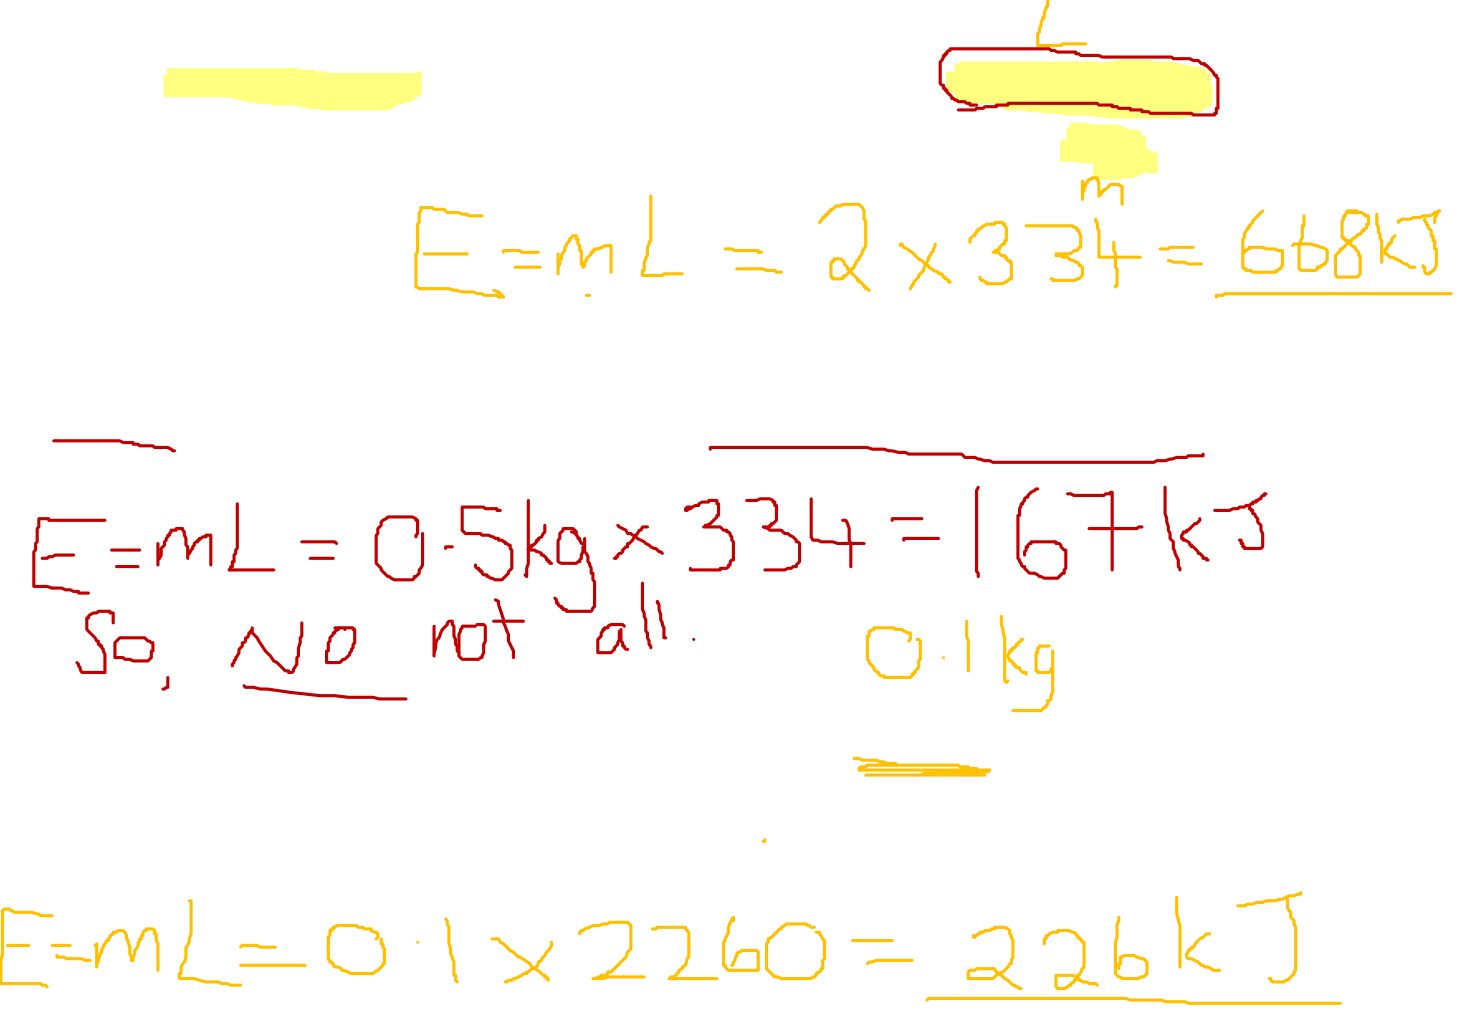 L
m
E=mL = 2 x 334 = 668kJ
E=mL = 0.5kg x 334 = 167kJ
So, NO not all.
0.1kg
E=mL = 0.1 x 2260 = 226kJ